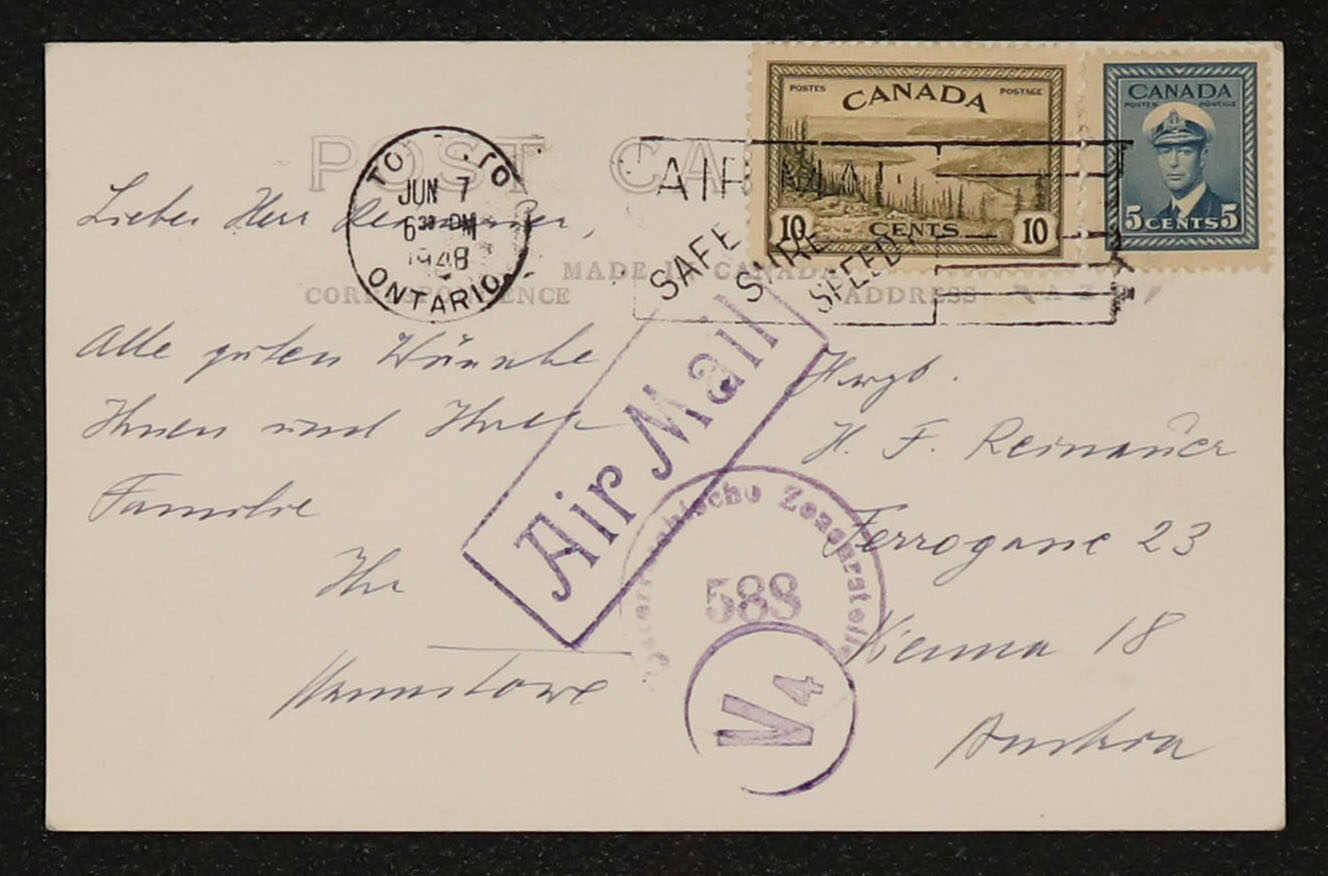 POST CA
CANADA
POSTES POSTAGE
10 CENTS 10
CANADA
POSTES POSTAGE
5 CENTS 5
TO TO
JUN 7
6 30 PM
1948
ONTARIO
AIR MAIL
SAFE SURE SPEEDY
MADE IN CANADA
CORRESPONDENCE ADDRESS
Lieber Herr
Alle guten Wünsche
Ihnen und Ihrer
Familie
Ihr
Air Mail
H. F. Reinauer
Ferrogasse 23
Vienna 18
Austria
Oesterreichische Zensurstelle
588
V4